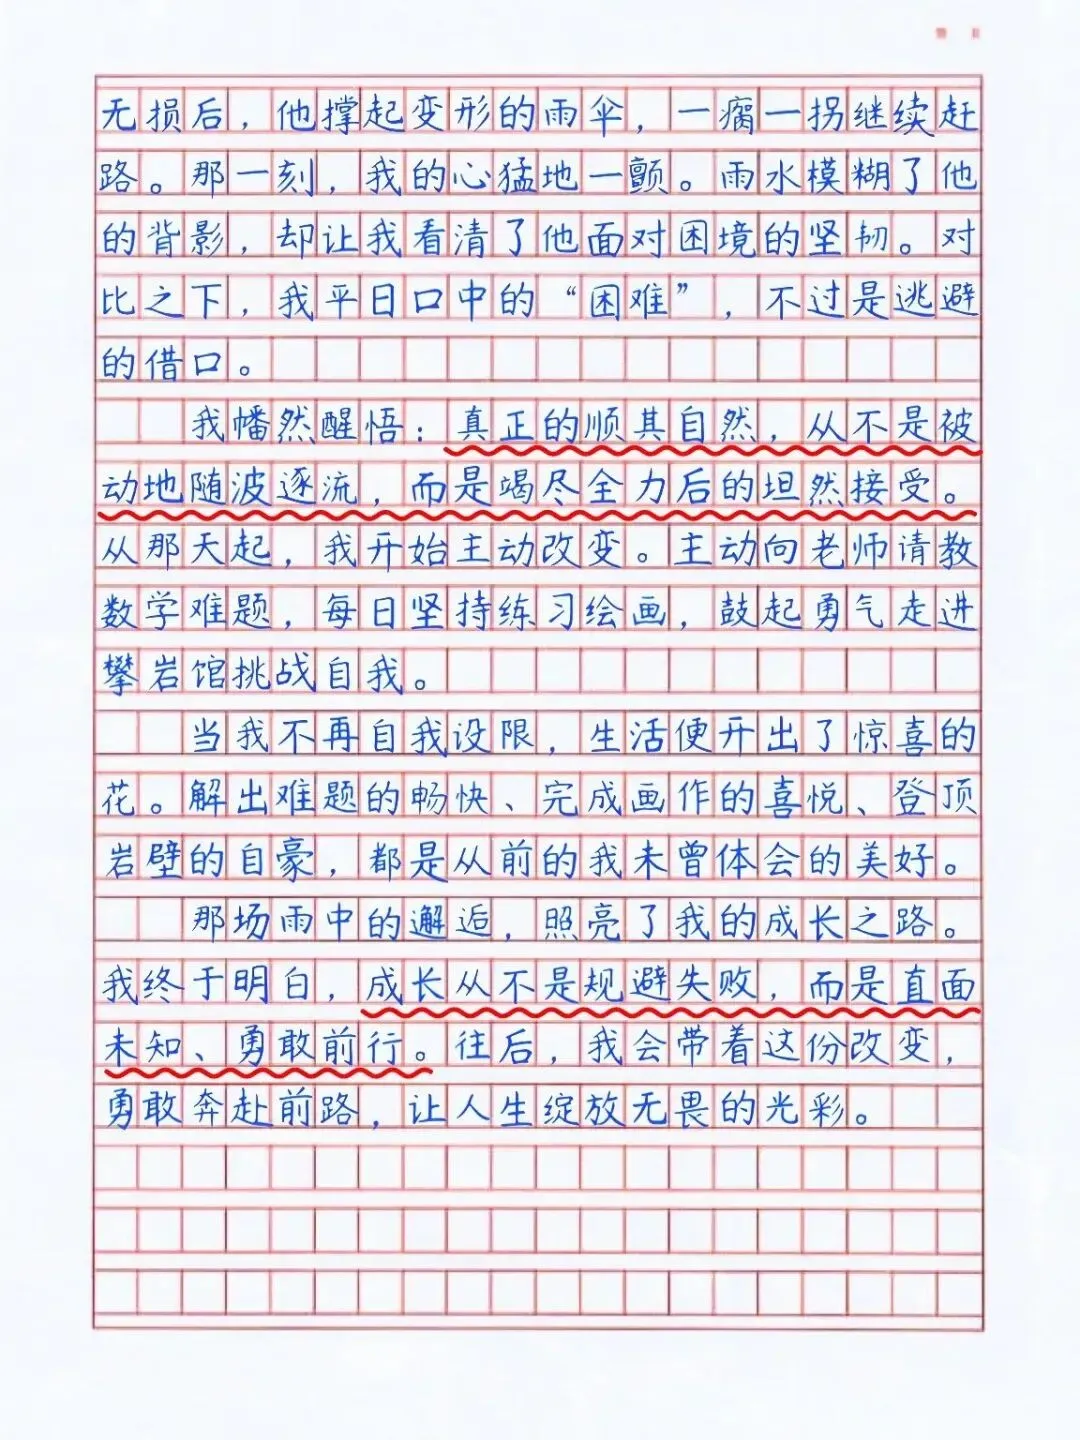 无损后，他撑起变形的雨伞，一瘸一拐继续赶
路。那一刻，我的心猛地一颤。雨水模糊了他
的背影，却让我看清了他面对困境的坚韧。对
比之下，我平日口中的“困难”，不过是逃避
的借口。
我幡然醒悟：真正的顺其自然，从不是被
动地随波逐流，而是竭尽全力后的坦然接受。
从那天起，我开始主动改变。主动向老师请教
数学难题，每日坚持练习绘画，鼓起勇气走进
攀岩馆挑战自我。
当我不再自我设限，生活便开出了惊喜的
花。解出难题的畅快、完成画作的喜悦、登顶
岩壁的自豪，都是从前的我未曾体会的美好。
那场雨中的邂逅，照亮了我的成长之路。
我终于明白，成长从不是规避失败，而是直面
未知、勇敢前行。往后，我会带着这份改变，
勇敢奔赴前路，让人生绽放无畏的光彩。